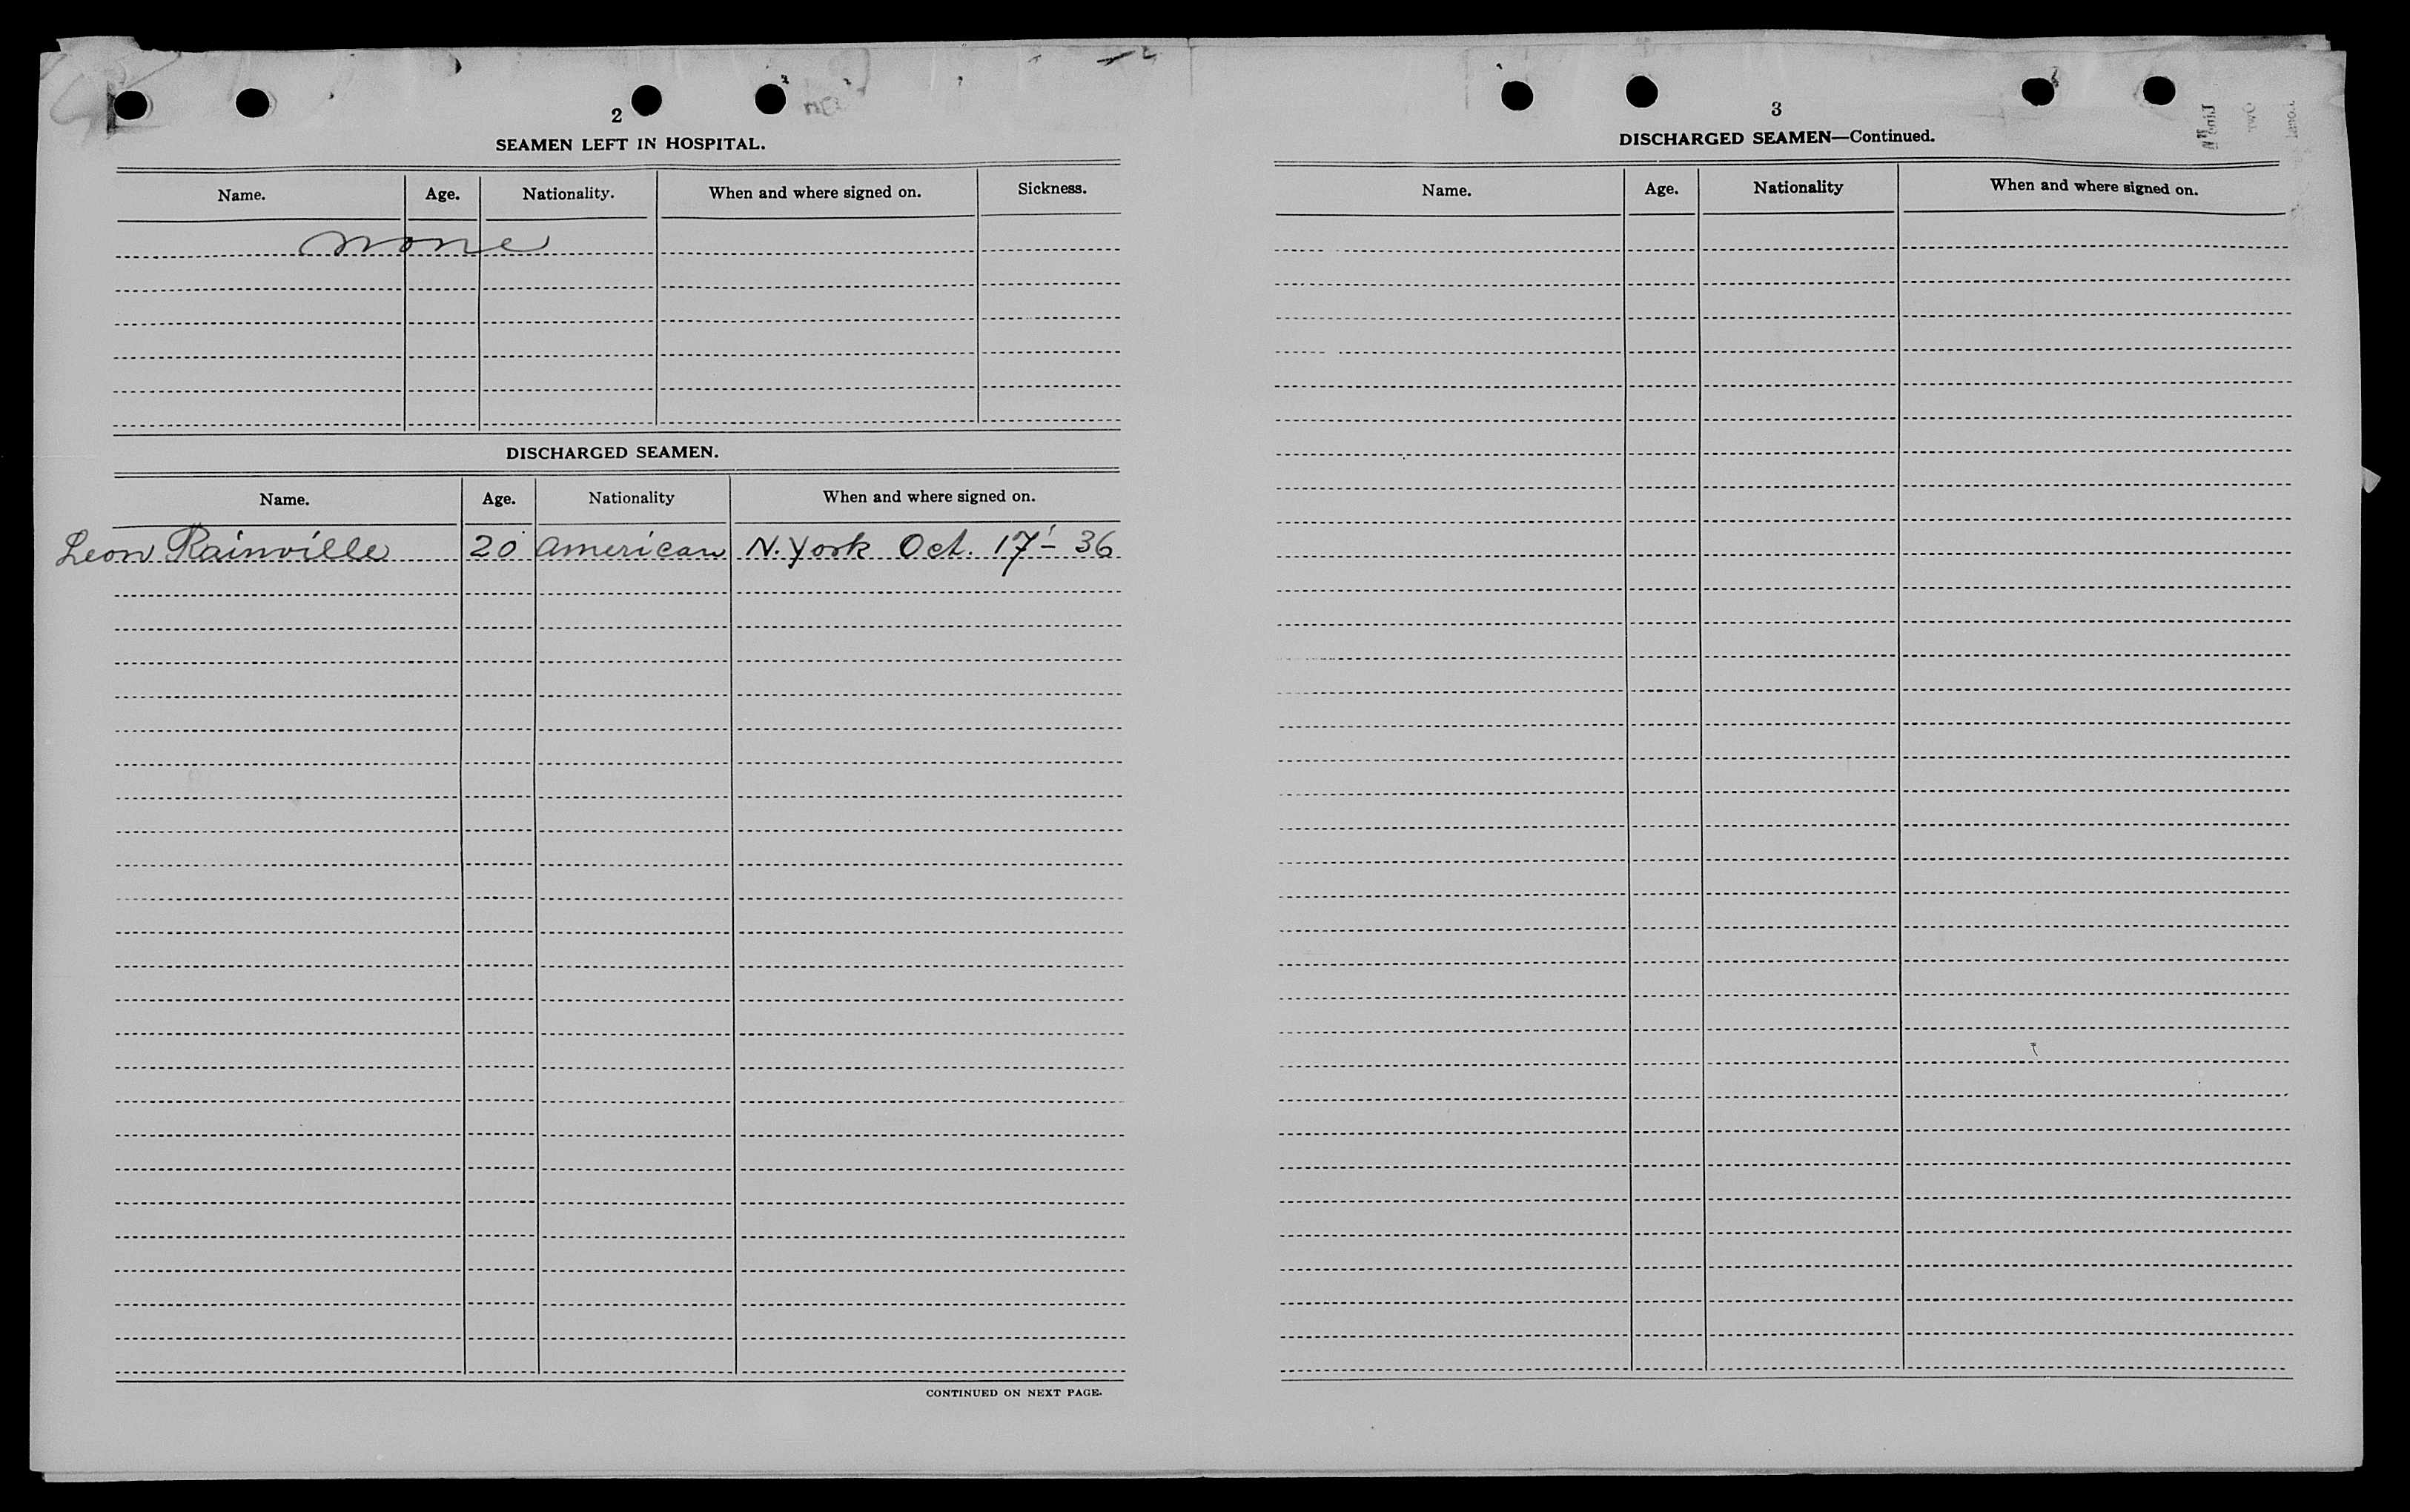 2
SEAMEN LEFT IN HOSPITAL.
Name. Age. Nationality. When and where signed on. Sickness.
none
DISCHARGED SEAMEN.
Name. Age. Nationality When and where signed on.
Leon Rainville 20 American N. York Oct. 17 - 36
CONTINUED ON NEXT PAGE.
3
DISCHARGED SEAMEN—Continued.
Name. Age. Nationality When and where signed on.